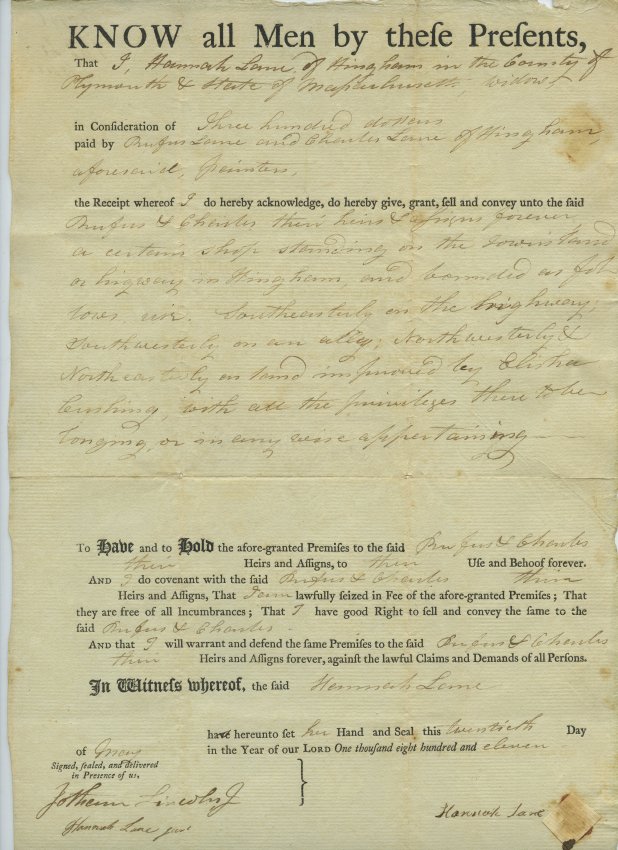 KNOW all Men by theſe Preſents,
That I Hannah Lane of Hingham in the County of
Plymouth & State of Massachusetts, widow,
in Conſideration of Three hundred dollars
paid by Rufus Lane and Charles Lane of Hingham,
aforesaid, painters,
the Receipt whereof I do hereby acknowledge, do hereby give, grant, ſell and convey unto the ſaid
Rufus & Charles their heirs & assigns forever
a certain shop standing on the towns land
or higway in Hingham, and bounded as fol
lows viz. Southeasterly on the highway;
Southwesterly on an alley; Northwesterly &
Northeasterly on land improved by Elisha
Cushing, with all the privileges there to be
longing, or in any wise appertaining
To Have and to Hold the afore-granted Premiſes to the ſaid Rufus & Charles
their Heirs and Aſſigns, to their Uſe and Behoof forever.
AND I do covenant with the ſaid Rufus & Charles their
Heirs and Aſſigns, That I am lawfully ſeized in Fee of the afore-granted Premiſes; That
they are free of all Incumbrances; That I have good Right to ſell and convey the ſame to the
ſaid Rufus & Charles
AND that I will warrant and defend the ſame Premiſes to the ſaid Rufus & Charles
their Heirs and Aſſigns forever, againſt the lawful Claims and Demands of all Perſons.
In Witneſs whereof, the ſaid Hannah Lane
have hereunto ſet her Hand and Seal this twentieth Day
of in the Year of our LORD One thouſand eight hundred and eleven
Signed, ſealed, and delivered
in Preſence of us,
Jotham Lincoln Jr
Hannah Lane junr
Hannah Lane